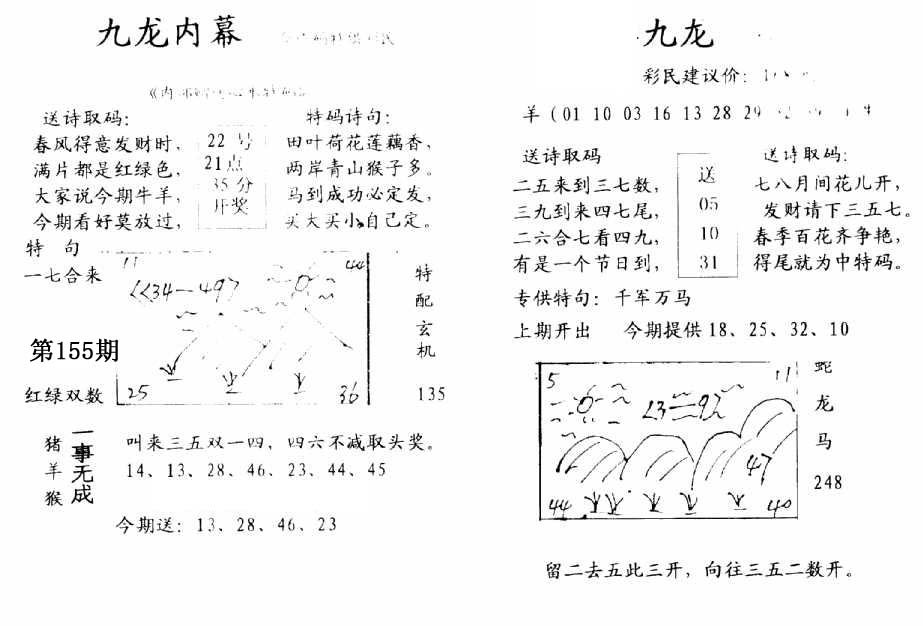 九龙内幕
送诗取码:
春风得意发财时,
满片都是红绿色,
大家说今期牛羊,
今期看好莫放过,
22 号
21点
35分
开奖
特码诗句:
田叶荷花莲藕香,
两岸青山猴子多。
马到成功必定发,
买大买小自己定。
特 句
一七合来
第155期
红绿双数
11
44
<<34—49>
25
36
特
配
玄
机
135
猪
羊
猴
一事无成
叫来三五双一四, 四六不减取头奖。
14、13、28、46、23、44、45
今期送: 13、28、46、23
九龙
彩民建议价:
羊 (01 10 03 16 13 28 29
送诗取码
二五来到三七数,
三九到来四七尾,
二六合七看四九,
有是一个节日到,
送
05
10
31
送诗取码:
七八月间花儿开,
发财请下三五七。
春季百花齐争艳,
得尾就为中特码。
专供特句: 千军万马
上期开出 今期提供 18、25、32、10
5
11
47
44
40
蛇
龙
马
248
留二去五此三开, 向往三五二数开。